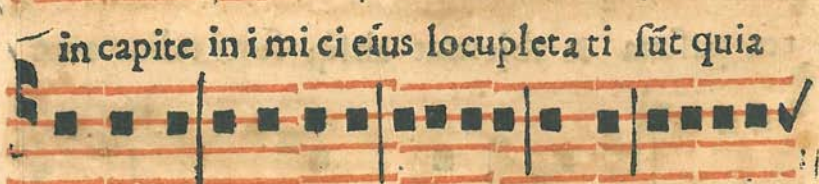 in capite in i mi ci eius locupleta ti ſūt quia